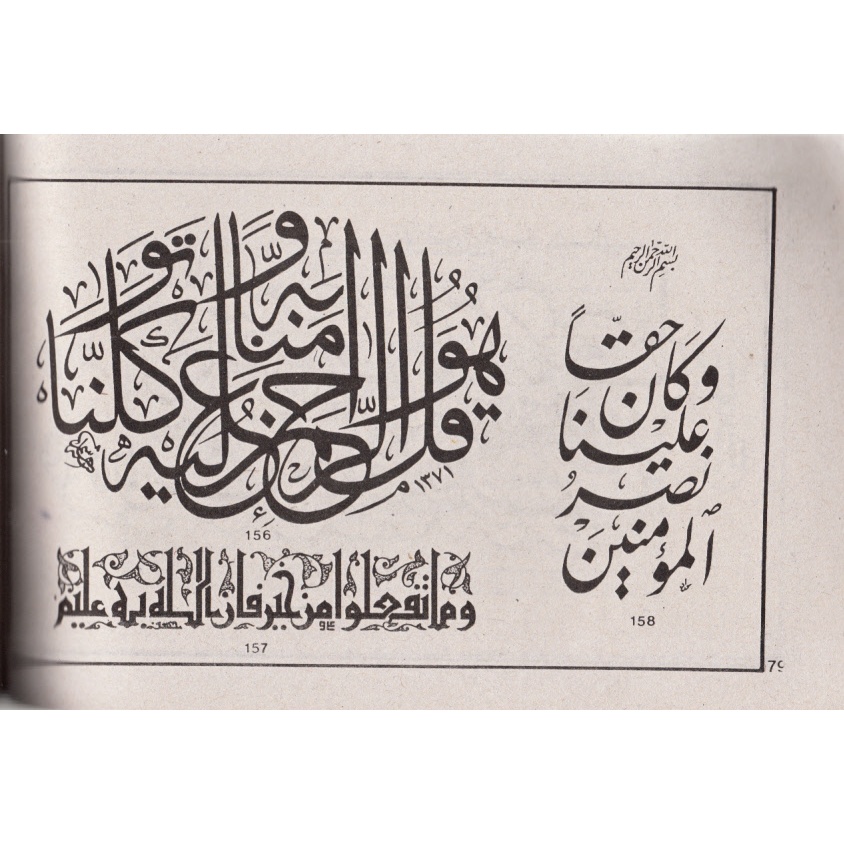 قل هو الرحمن آمنا به وعليه توكلنا
١٣٧١
156
وما تفعلوا من خير فان الله به عليم
157
بسم الله الرحمن الرحيم
وكان حقا
علينا
نصر
المؤمنين
158
79